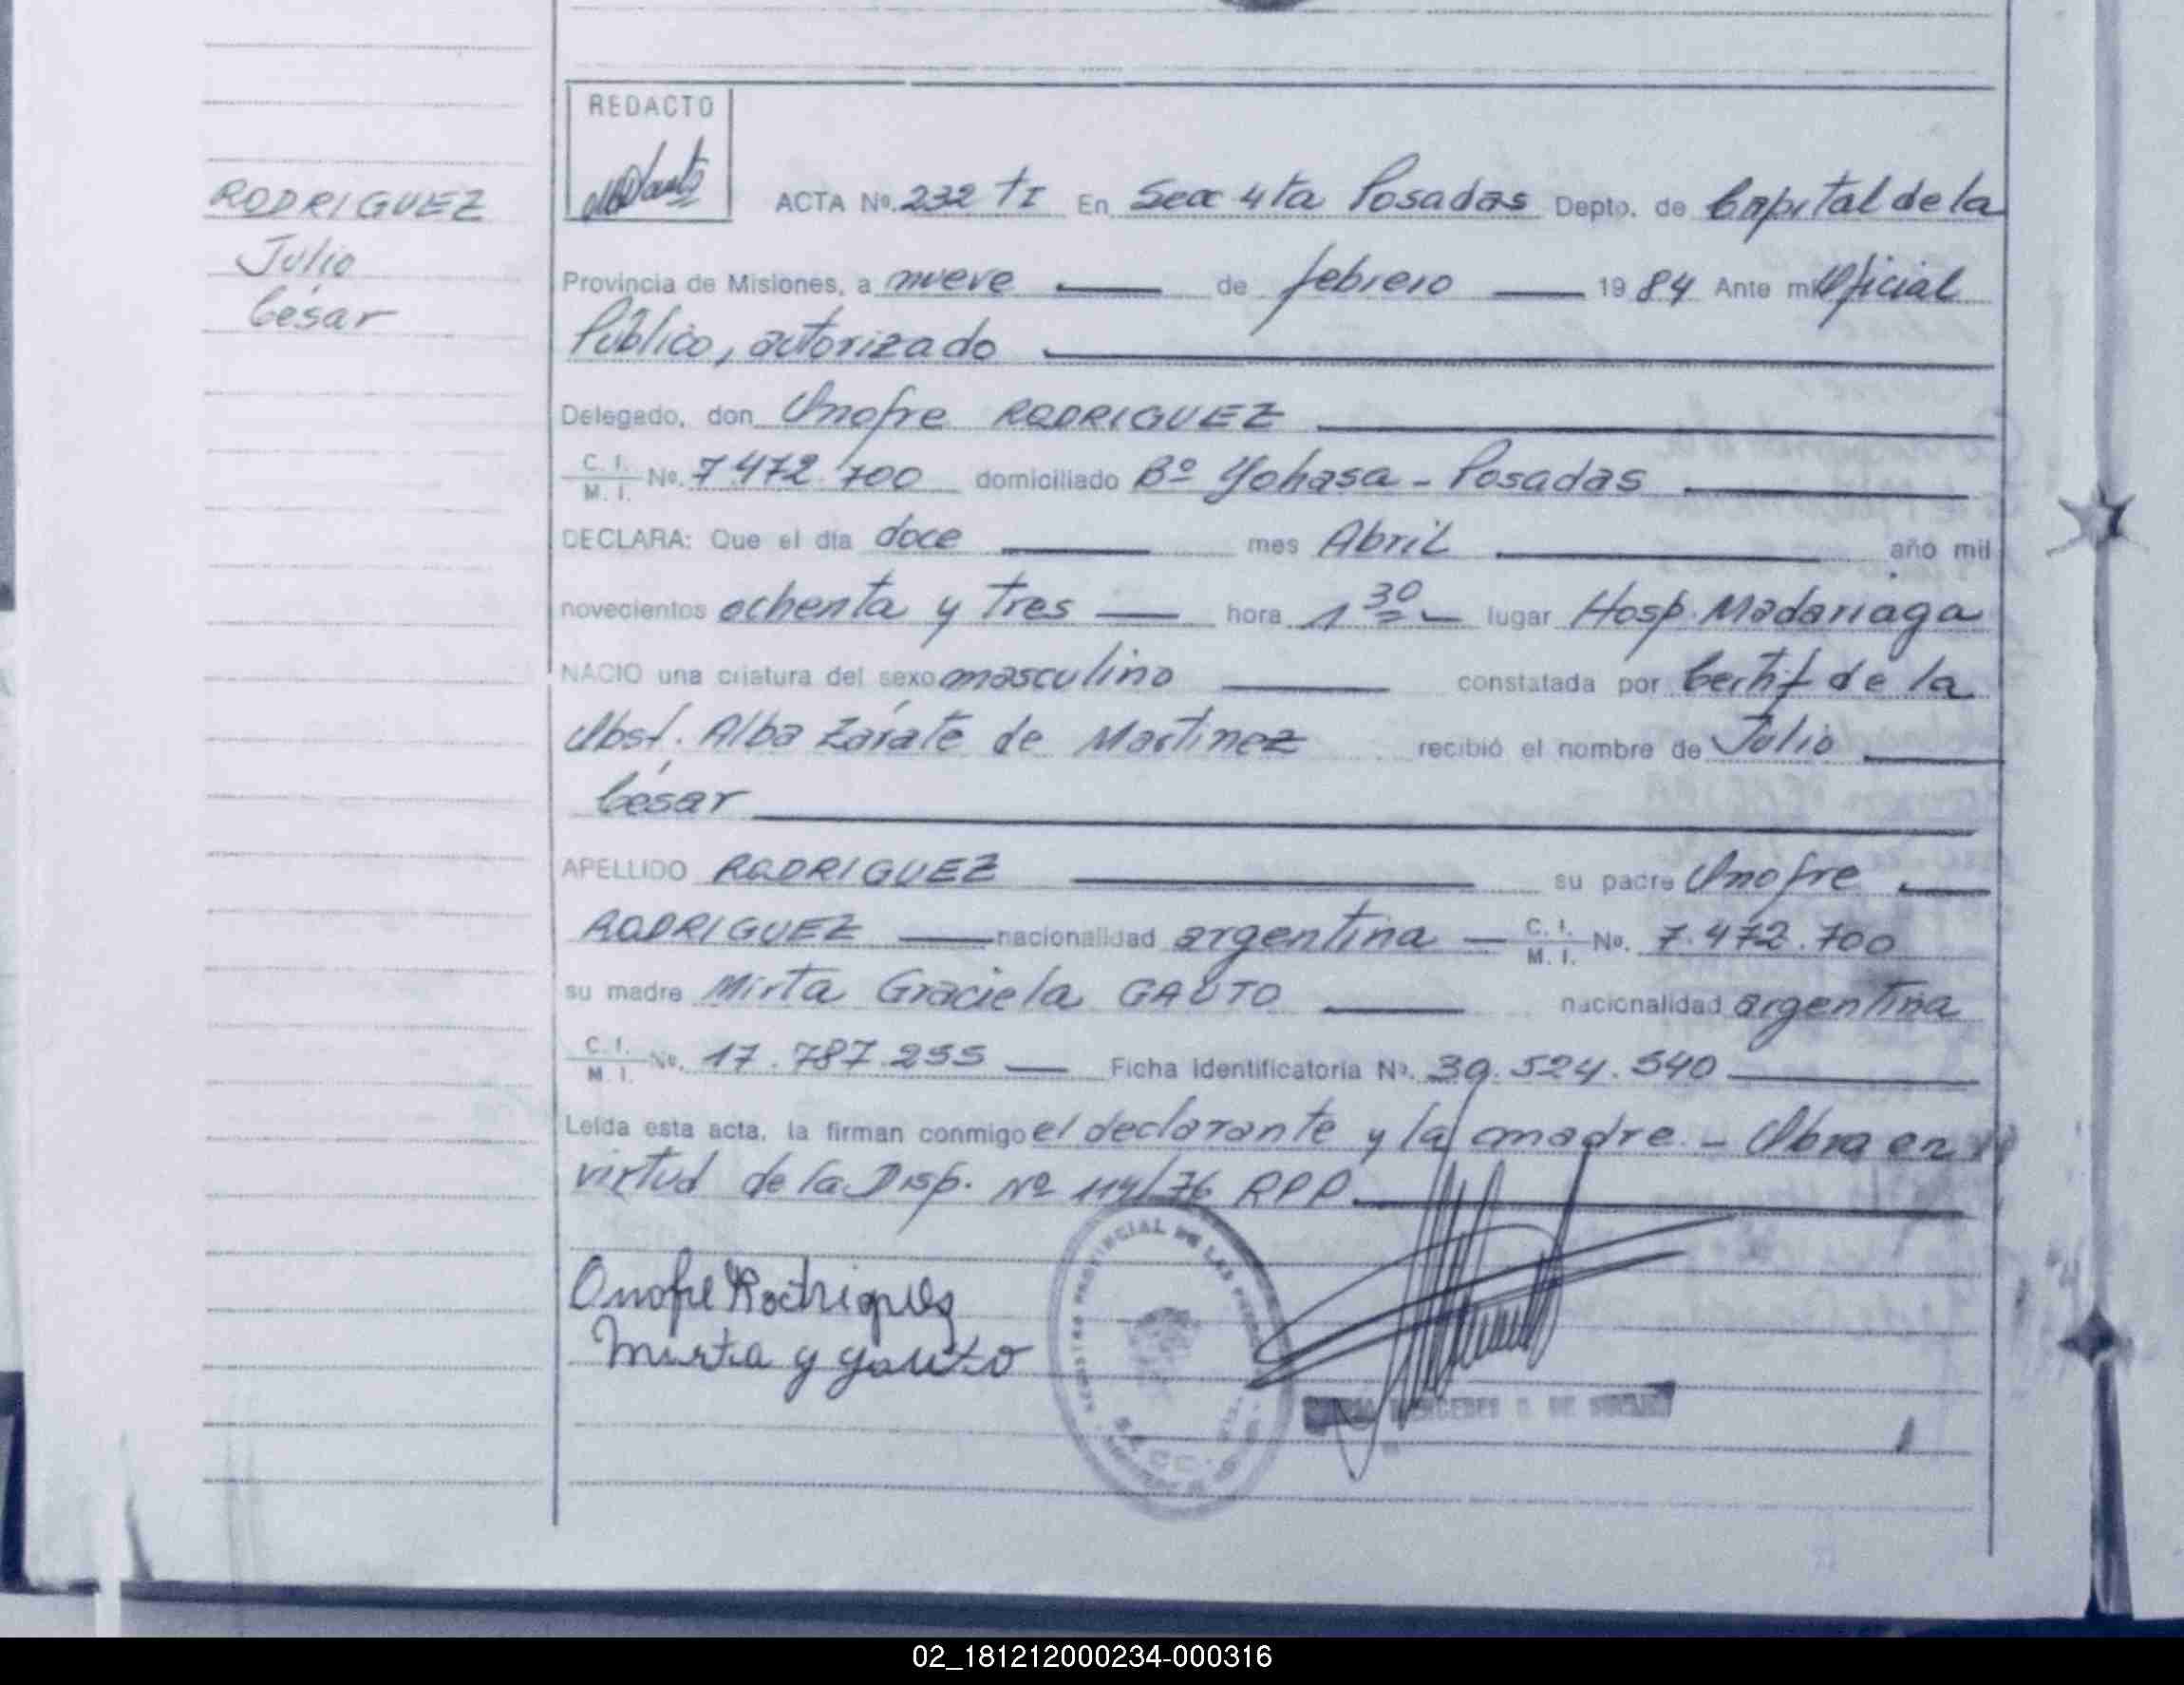 REDACTO
RODRIGUEZ
Julio
César
ACTA Nº. 232 TI En Secc 4ta Posadas Depto. de Capital de la
Provincia de Misiones, a nueve de febrero 1984 Ante mi Oficial
Público, autorizado
Delegado, don Onofre RODRIGUEZ
C. I. M. I. Nº. 7.472.700 domiciliado Bº Yohasa - Posadas
DECLARA: Que el día doce mes Abril año mil
novecientos ochenta y tres hora 1 30 lugar Hosp. Madariaga
NACIO una criatura del sexo masculino constatada por Certif de la
Obst. Alba Zárate de Martinez recibió el nombre de Julio
César
APELLIDO RODRIGUEZ su padre Onofre
RODRIGUEZ nacionalidad argentina C. I. M. I. Nº. 7.472.700
su madre Mirta Graciela GAUTO nacionalidad argentina
C. I. M. I. Nº. 17.787.255 Ficha Identificatoria Nº. 39.524.540
Leída esta acta, la firman conmigo el declarante y la madre. - Obra en
virtud de la Disp. Nº 114/76 RPP.
Onofre Rodriguez
Mirta g gauto
PROVINCIAL DE LAS
02_181212000234-000316